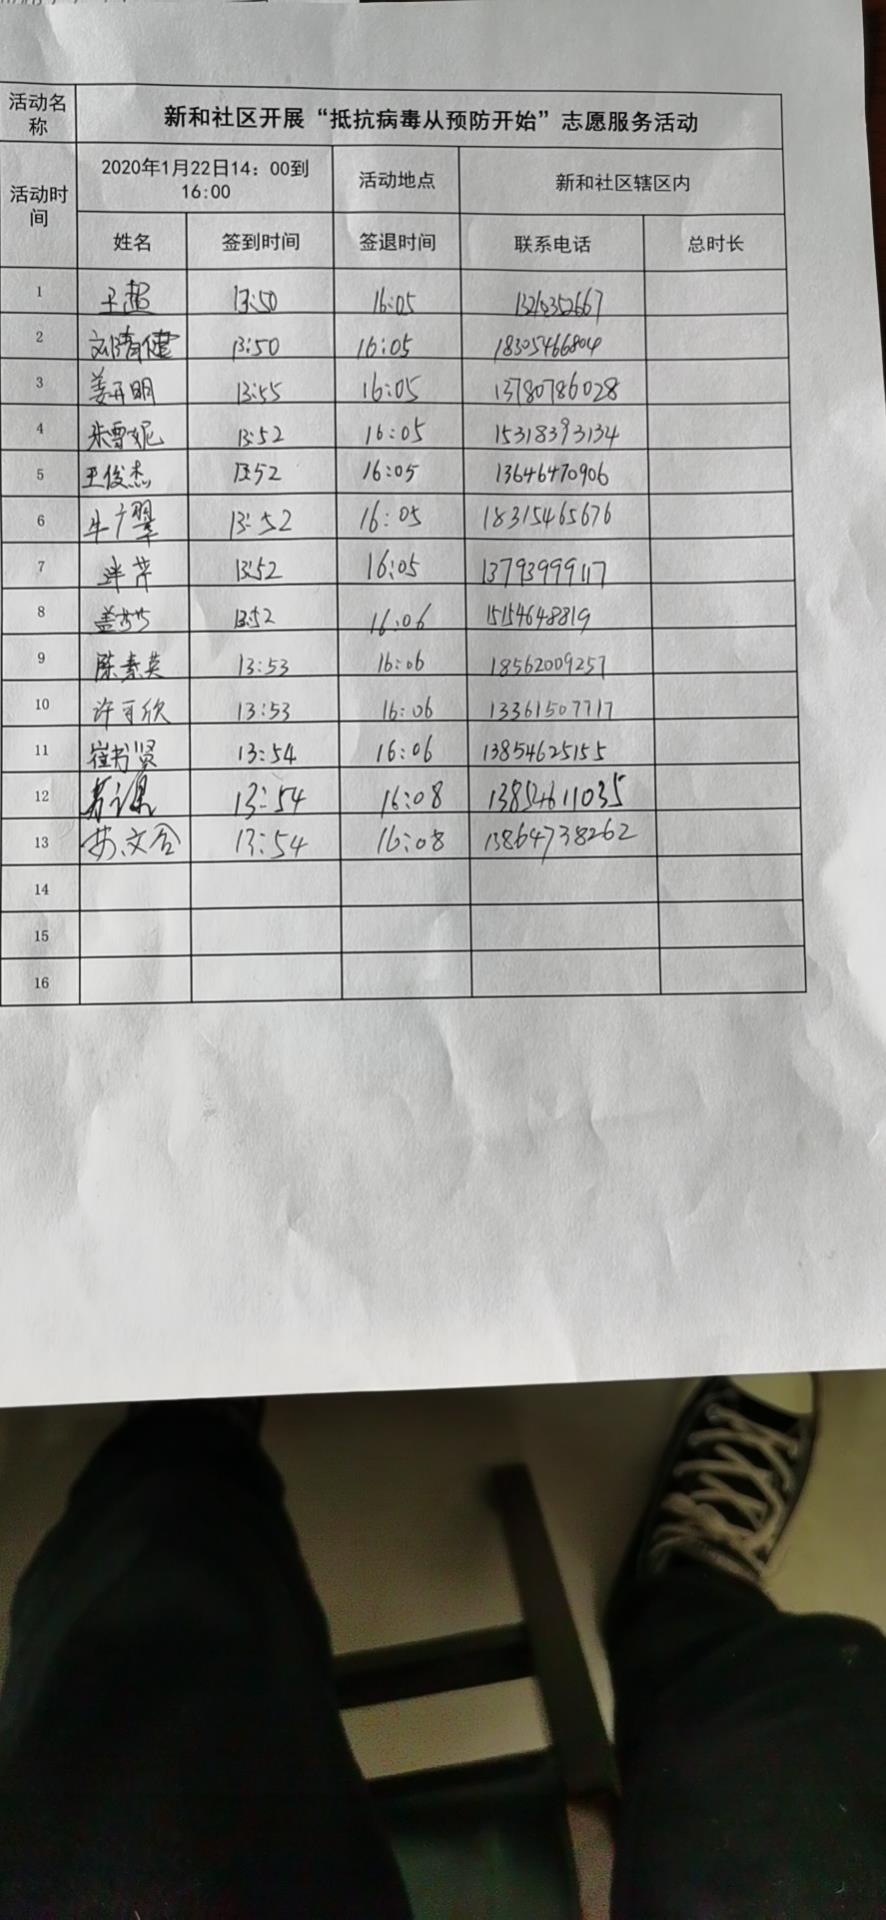 活动名称 新和社区开展“抵抗病毒从预防开始”志愿服务活动
活动时间 2020年1月22日14：00到16:00 活动地点 新和社区辖区内
姓名 签到时间 签退时间 联系电话 总时长
1 王超 13:50 16:05
2 刘清健 13:50 16:05 18305466804
3 姜开明 13:55 16:05 13780786028
4 朱雪妮 13:52 16:05 15318393134
5 王俊杰 13:52 16:05 13646470906
6 牛广翠 13:52 16:05 18315465676
7 13:52 16:05 13793999117
8 盖芳芳 13:52 16:06 15154648819
9 陈素英 13:53 16:06 18562009257
10 许可欣 13:53 16:06 13361507717
11 崔书贤 13:54 16:06 13854625155
12 13:54 16:08 13854611035
13 13:54 16:08 13864738262
14
15
16